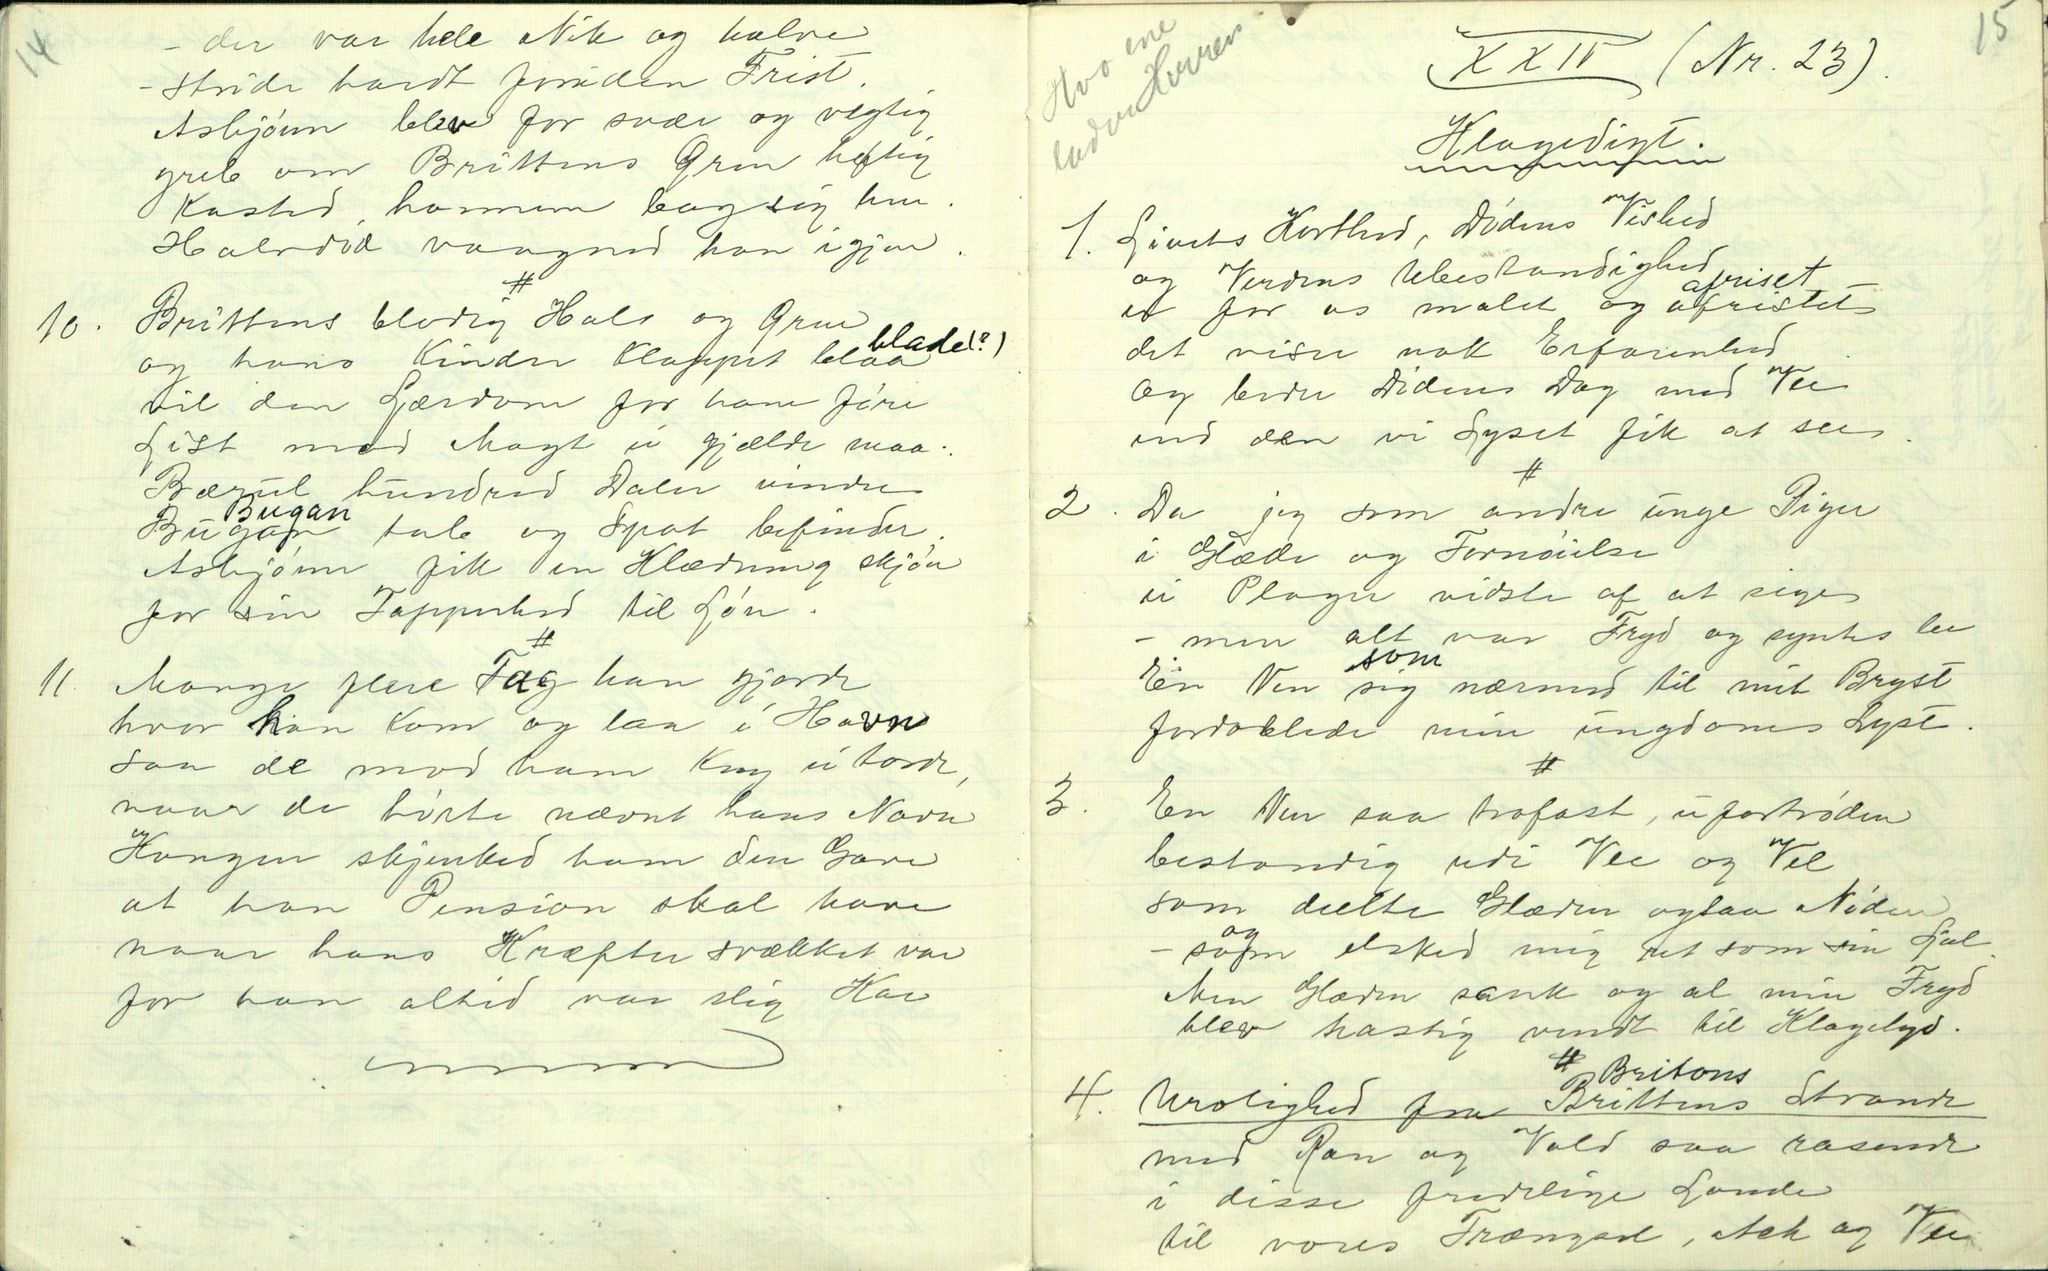 14
- der var hele Nik og halve
- stride hardt foruden Frist.
Asbjörn blev for svær og vegtig
greb om Brittens Gren heftig
Kasted, hannem bag sig hen.
Halvdöd vaagned han igjen.
#
10. Brittens blodig Hals og Gren
blade(?)
og hans Kinder Klappet blaa
vil den Lærdom for ham före
List mod Magt ei gjælde maa.
Bærul hundred Daler vinder
Bugan
Bugan tab og Spot befinder.
Asbjörn fik en Klædning skjön
for sin Tapperhed til Lön.
#
11. Mange flere Tag han gjorde
hvor han kom og laa i Havn
saa de mod ham Krig ei torde,
naar de hörte nævnt hans Navn
Kongen skjenked ham den Gave
at han Pension skal have
naar hans Kræfter svækket var
for han altid var slig Kar
15
Hvo ene
lader Herren
XXIV (Nr. 23).
Klagedigt.
1. Livets Korthed, Dödens Vished
og Verdens Ubestandighed
afriset
er for os malet og afristet
det viser nok Erfarenhed
og bedre Dödens Dag med Vee
end den vi Lyset fik at see.
#
2. Da jeg som andre unge Piger
i Glæde og Fornöielse
ei Plager vidste af at sige
- men alt var Fryd og syntes lee
som
En Ven sig nærmed til mit Bryst
fordoblede min ungdoms Lyst.
#
3. En Ven saa trofast, ufortröden
bestandig udi Vee og Vel
som deelte Glæden ogsaa Nöden
og
- som elsked mig ret som sin Sjæl.
Men Glæden sank og al min Fryd
blev hastig vendt til Klagelyd.
#
Britons
4. Urolighed fra Brittens Strande
med Ran og Vold saa rasende
i disse fredelige Lande
til vores Trængsel, Ack og Vee